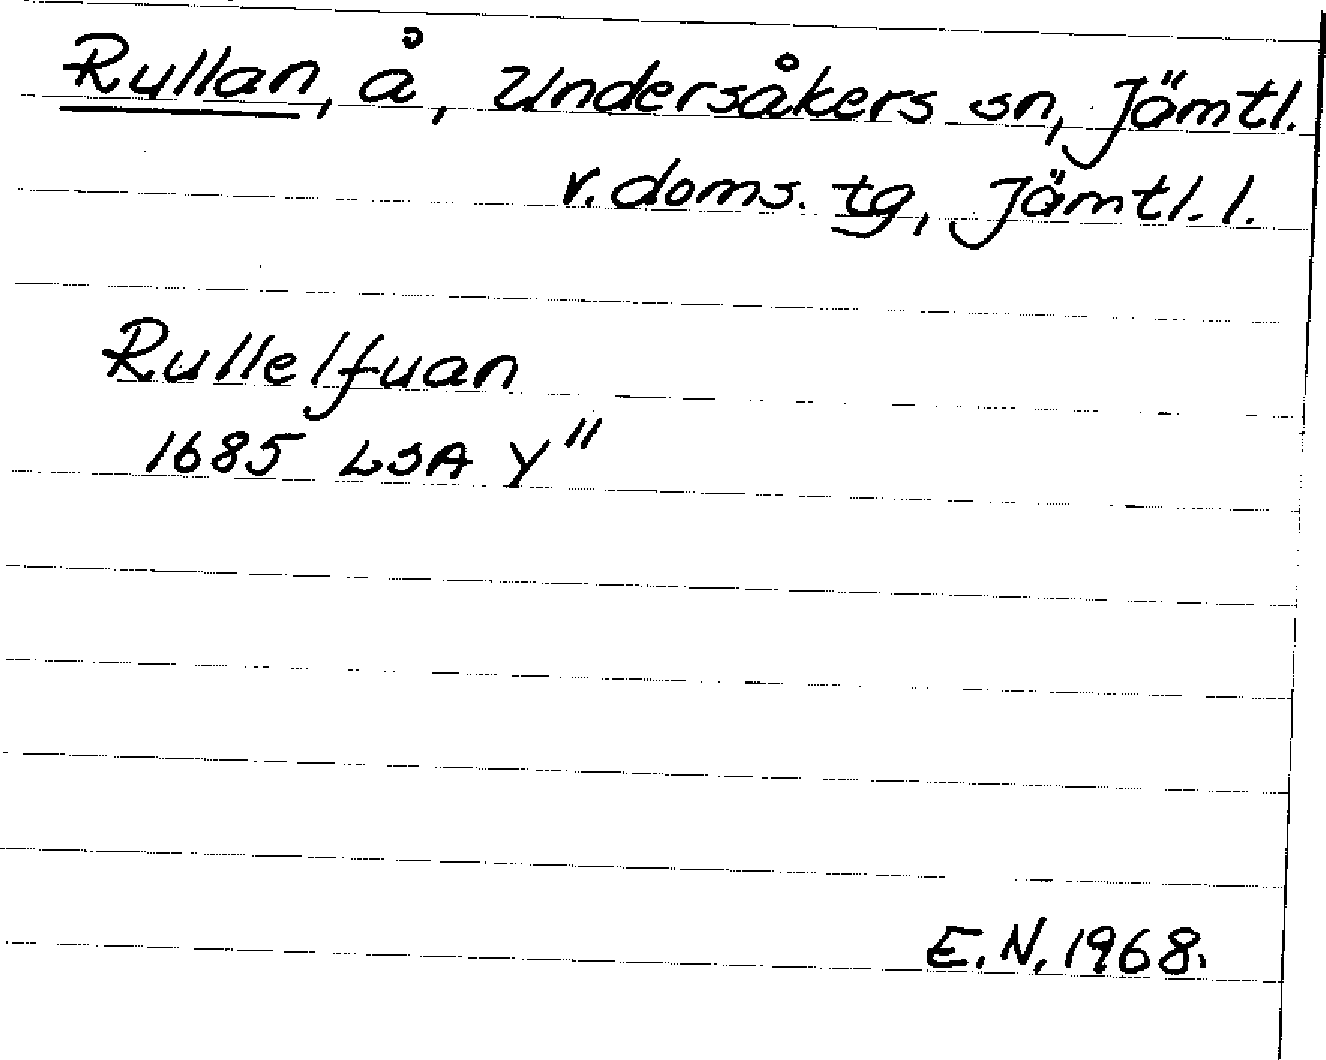 Rullan, å, Undersåkers sn, Jämtl.
v. doms. tg, Jämtl. l.
Rullelfuan
1685 LSA Y"
E.N. 1968.